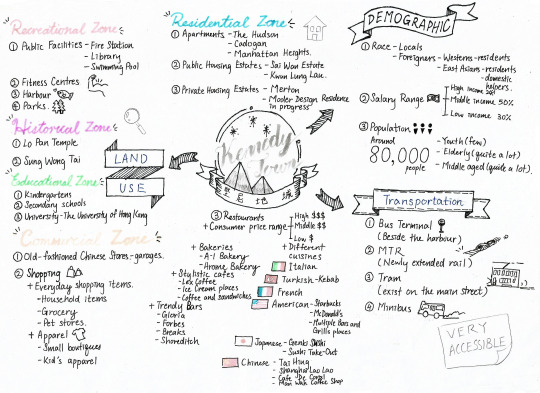 Recreational Zone
① Public Facilities - Fire Station
- Library
- Swimming Pool
② Fitness Centres
③ Harbour
④ Parks.
Historical Zone
① Lo Pan Temple
② Sung Wong Tai
Educational Zone
① Kindergartens
② Secondary schools
③ University - The University of Hong Kong
Commercial Zone
① Old-fashioned Chinese Stores - garages.
② Shopping
+ Everyday shopping items.
- Household items
- Grocery
- Pet stores.
+ Apparel
- Small boutiques
- Kid's apparel
Residential Zone
① Apartments - The Hudson
- Cadogan
- Manhattan Heights.
② Public Housing Estates - Sai Wan Estate
- Kwun Lung Lau.
③ Private Housing Estates - Merton
- Mooler Design Residence
in progress
LAND
USE
Kennedy
Town
堅尼地城
③ Restaurants
+ Consumer price range
High $$$
Middle $$
Low $
+ Bakeries
- A-1 Bakery
- Arome Bakery
+ Stylistic cafes
- Lex Coffee
- Ice Cream places
- Coffee and sandwiches
+ Trendy Bars
- Gloria
- Forbes
- Breaks
- Shoreditch
+ Different
cuisines
Italian
Turkish - Kebab
French
American - Starbucks
- McDonald's
- Multiple Bars and
Grills places
Japanese - Genki Sushi
- Sushi Take-Out
Chinese - Tai Hing
- Shanghai Lao Lao
- Cafe De Coral
- Man Wah Coffee Shop
DEMOGRAPHIC
① Race - Locals
- Foreigners - Westerns-residents
- East Asians - residents
- domestic
helpers.
② Salary Range
High income 20%
Middle income 50%
Low income 30%
③ Population
Around
80,000
people
- Youth (few)
- Elderly (quite a lot)
- Middle aged (quite a lot)
Transportation
① Bus Terminal
(Beside the harbour)
② MTR
(Newly extended rail)
③ Tram
(exist on the main street)
④ Minibus
VERY
ACCESSIBLE